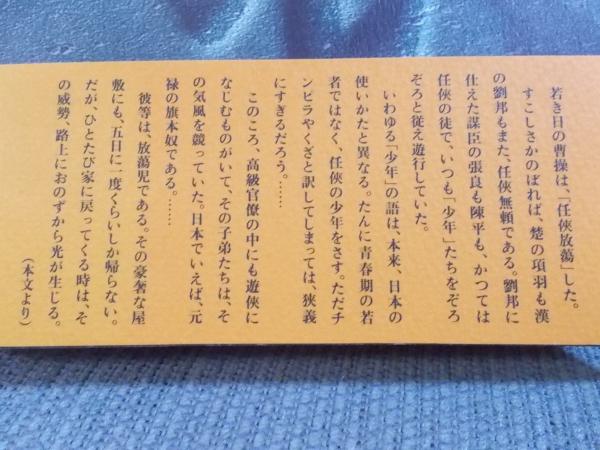 若き日の曹操は、「任俠放蕩」した。
すこしさかのぼれば、楚の項羽も漢
の劉邦もまた、任俠無頼である。劉邦に
仕えた謀臣の張良も陳平も、かつては
任俠の徒で、いつも「少年」たちをぞろ
ぞろと従え遊行していた。
いわゆる「少年」の語は、本来、日本の
使いかたと異なる。たんに青春期の若
者ではなく、任俠の少年をさす。ただチ
ンピラやくざと訳してしまっては、狭義
にすぎるだろう。……
このころ、高級官僚の中にも遊俠に
なじむものがいて、その子弟たちは、そ
の気風を競っていた。日本でいえば、元
禄の旗本奴である。……
彼等は、放蕩児である。その豪奢な屋
敷にも、五日に一度くらいしか帰らない。
だが、ひとたび家に戻ってくる時は、そ
の威勢、路上におのずから光が生じる。
(本文より)